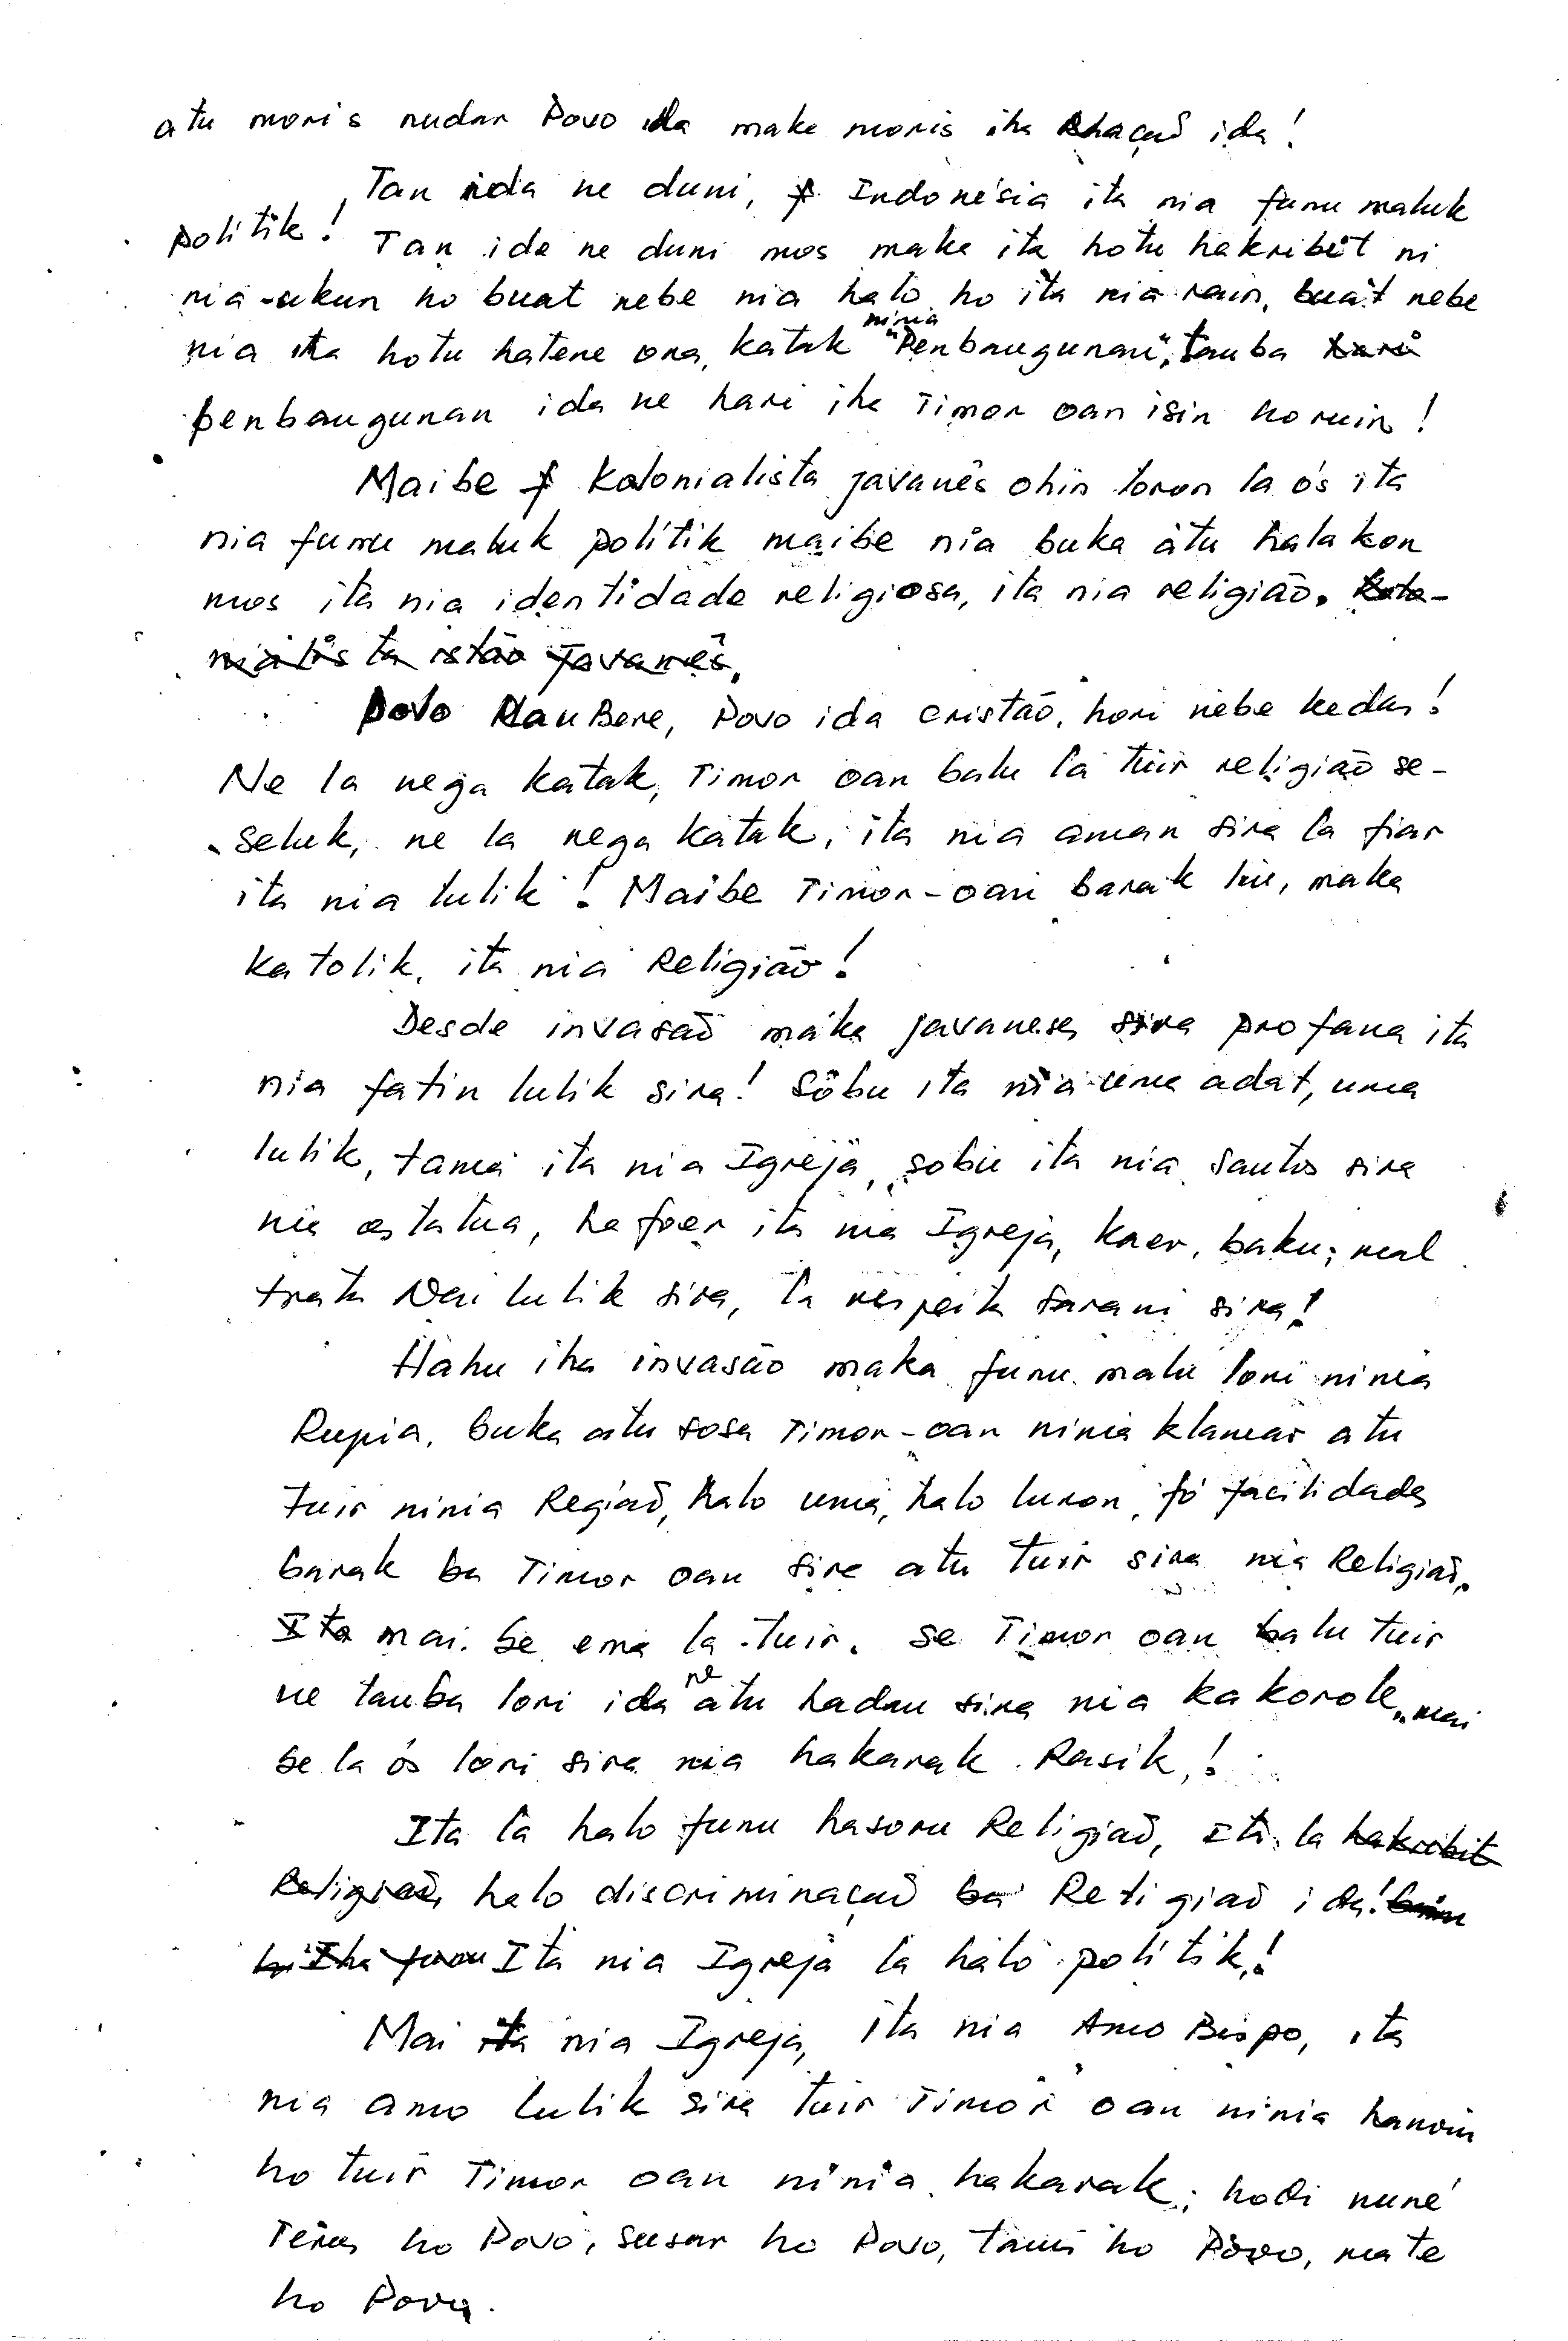 atu moris nudar Povo ida make moris iha Nhaçaõ ida!
Tan ida ne duni, f. Indonésia ita nia funu maluk
politik! Tan ida ne duni mos maka ita hotu hakribit ni
nia-ukun ho buat nebe nia halo ho ita nia rain, buat nebe
nia ita hotu hatene ona, katak ninia "Penbangunan", tauba
penbangunan ida ne hari iha Timor oan isin ho ruin!
Maibe f kolonialista javanês ohin loron la ós ita
nia funu maluk politik maibe nia buka atu halakon
mos ita nia identidade religiosa, ita nia religião. Kolo-
nialista istão Javanês,
Povo MauBere, Povo ida cristão, hori nebe kedas!
Ne la nega katak, Timor oan balu la tuir religião se-
seluk, ne la nega katak, ita nia aman sira la fiar
ita nia lulik! Maibe Timor-oan barak liu, maka
katolik, ita nia Religião!
Desde invasaõ maka javaneses sira profana ita
nia fatin lulik sira! Sôbu ita nia uma adat, uma
lulik, tama ita nia Igreja, sobu ita nia santos sira
nia estatua, hafoer ita nia Igreja, kaer, baku, mal
trata Nai lulik sira, la respeita sarani sira!
Hahu iha invasão maka funu malu lori ninia
Rupia, buka atu sosa Timor-oan ninia klamar atu
tuir ninia Regiaõ, halo uma, halo luron, fó facilidades
barak ba Timor oan sira atu tuir sira nia Religiaõ,
Ita mai be ema la tuir. Se Timor oan balu tuir
ne tauba lori ida ne atu hadau sira nia kakorok, mai
be la ós lori sira nia hakarak Rasik,!
Ita la halo funu hasoru Religiaõ, Ita la hakribit
Religiaõ, halo discriminaçaõ ba Religiaõ ida!
Iha funu Ita nia Igreja la halo politik,!
Mai ita nia Igreja, ita nia Amo Bispo, ita
nia amo lulik sira tuir Timor oan ninia hanoin
ho tuir Timor oan ninia hakarak; hodi nuné
Terus ho Povo, susar ho Povo, tanis ho Povo, mate
ho Povo.